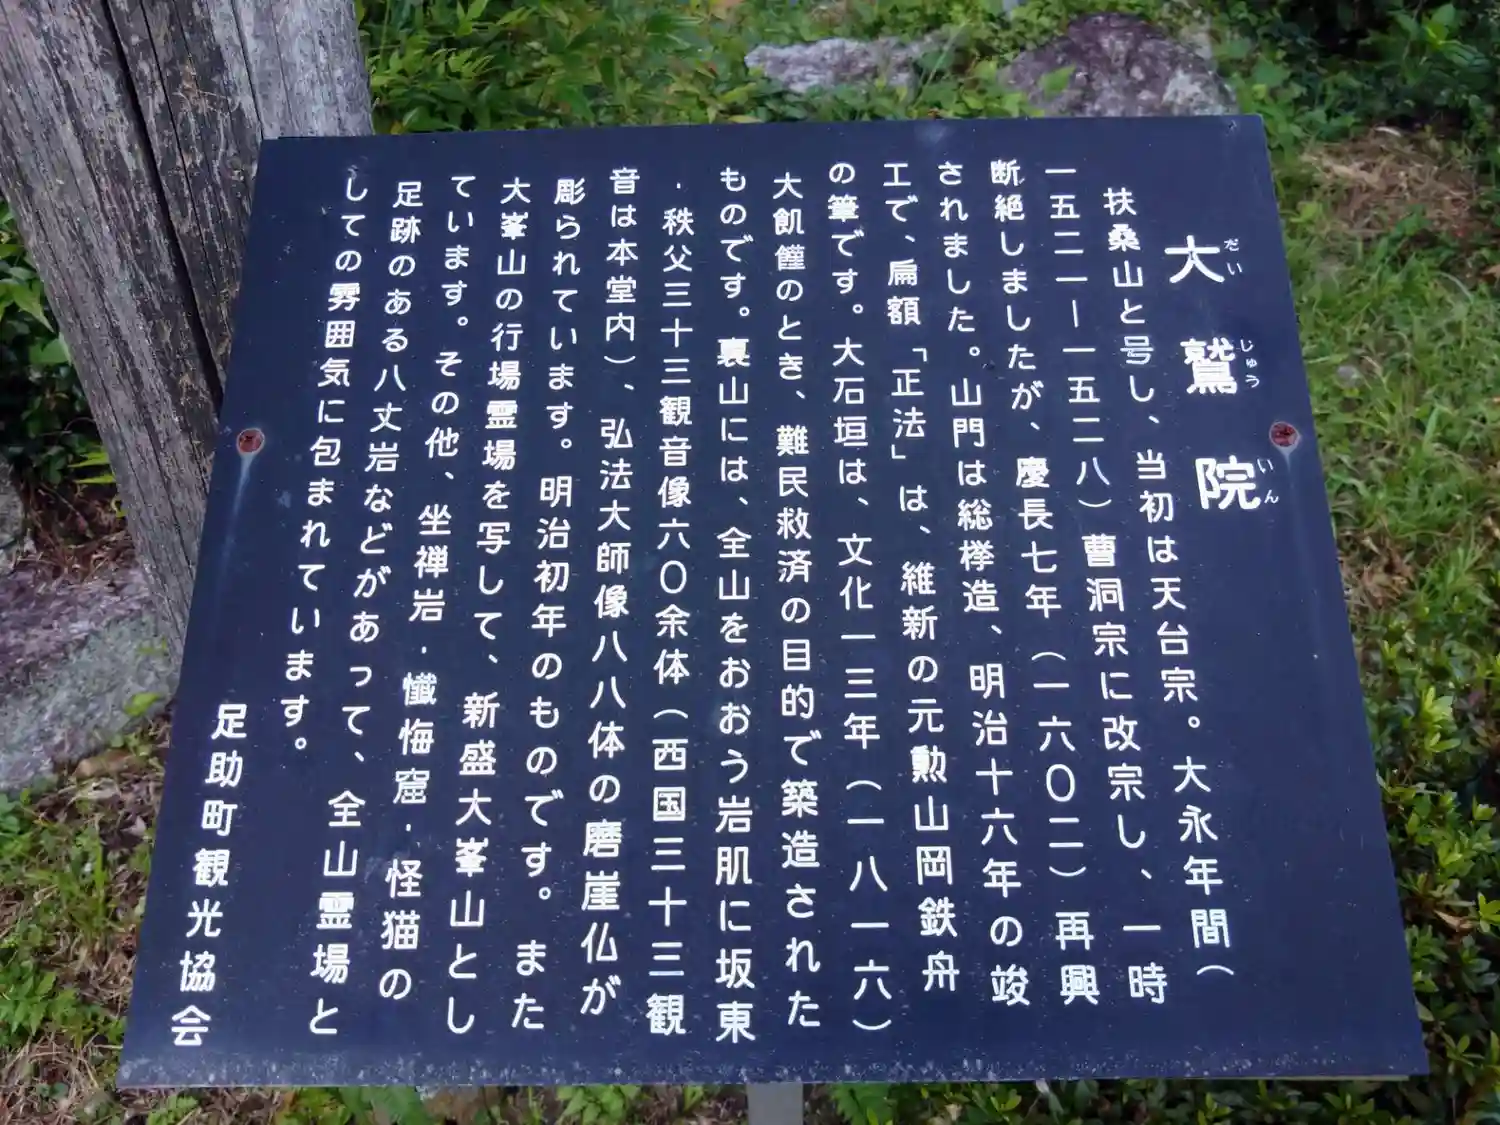 大鷲院
だいじゅういん
扶桑山と号し、当初は天台宗。大永年間（
一五二一ー一五二八）曹洞宗に改宗し、一時
断絶しましたが、慶長七年（一六〇二）再興
されました。山門は総欅造、明治十六年の竣
工で、扁額「正法」は、維新の元勲山岡鉄舟
の筆です。大石垣は、文化一三年（一八一六）
大飢饉のとき、難民救済の目的で築造された
ものです。裏山には、全山をおおう岩肌に坂東
・秩父三十三観音像六〇余体（西国三十三観
音は本堂内）、弘法大師像八八体の磨崖仏が
彫られています。明治初年のものです。また
大峯山の行場霊場を写して、新盛大峯山とし
ています。その他、坐禅岩・懺悔窟・怪猫の
足跡のある八丈岩などがあって、全山霊場と
しての雰囲気に包まれています。
足助町観光協会